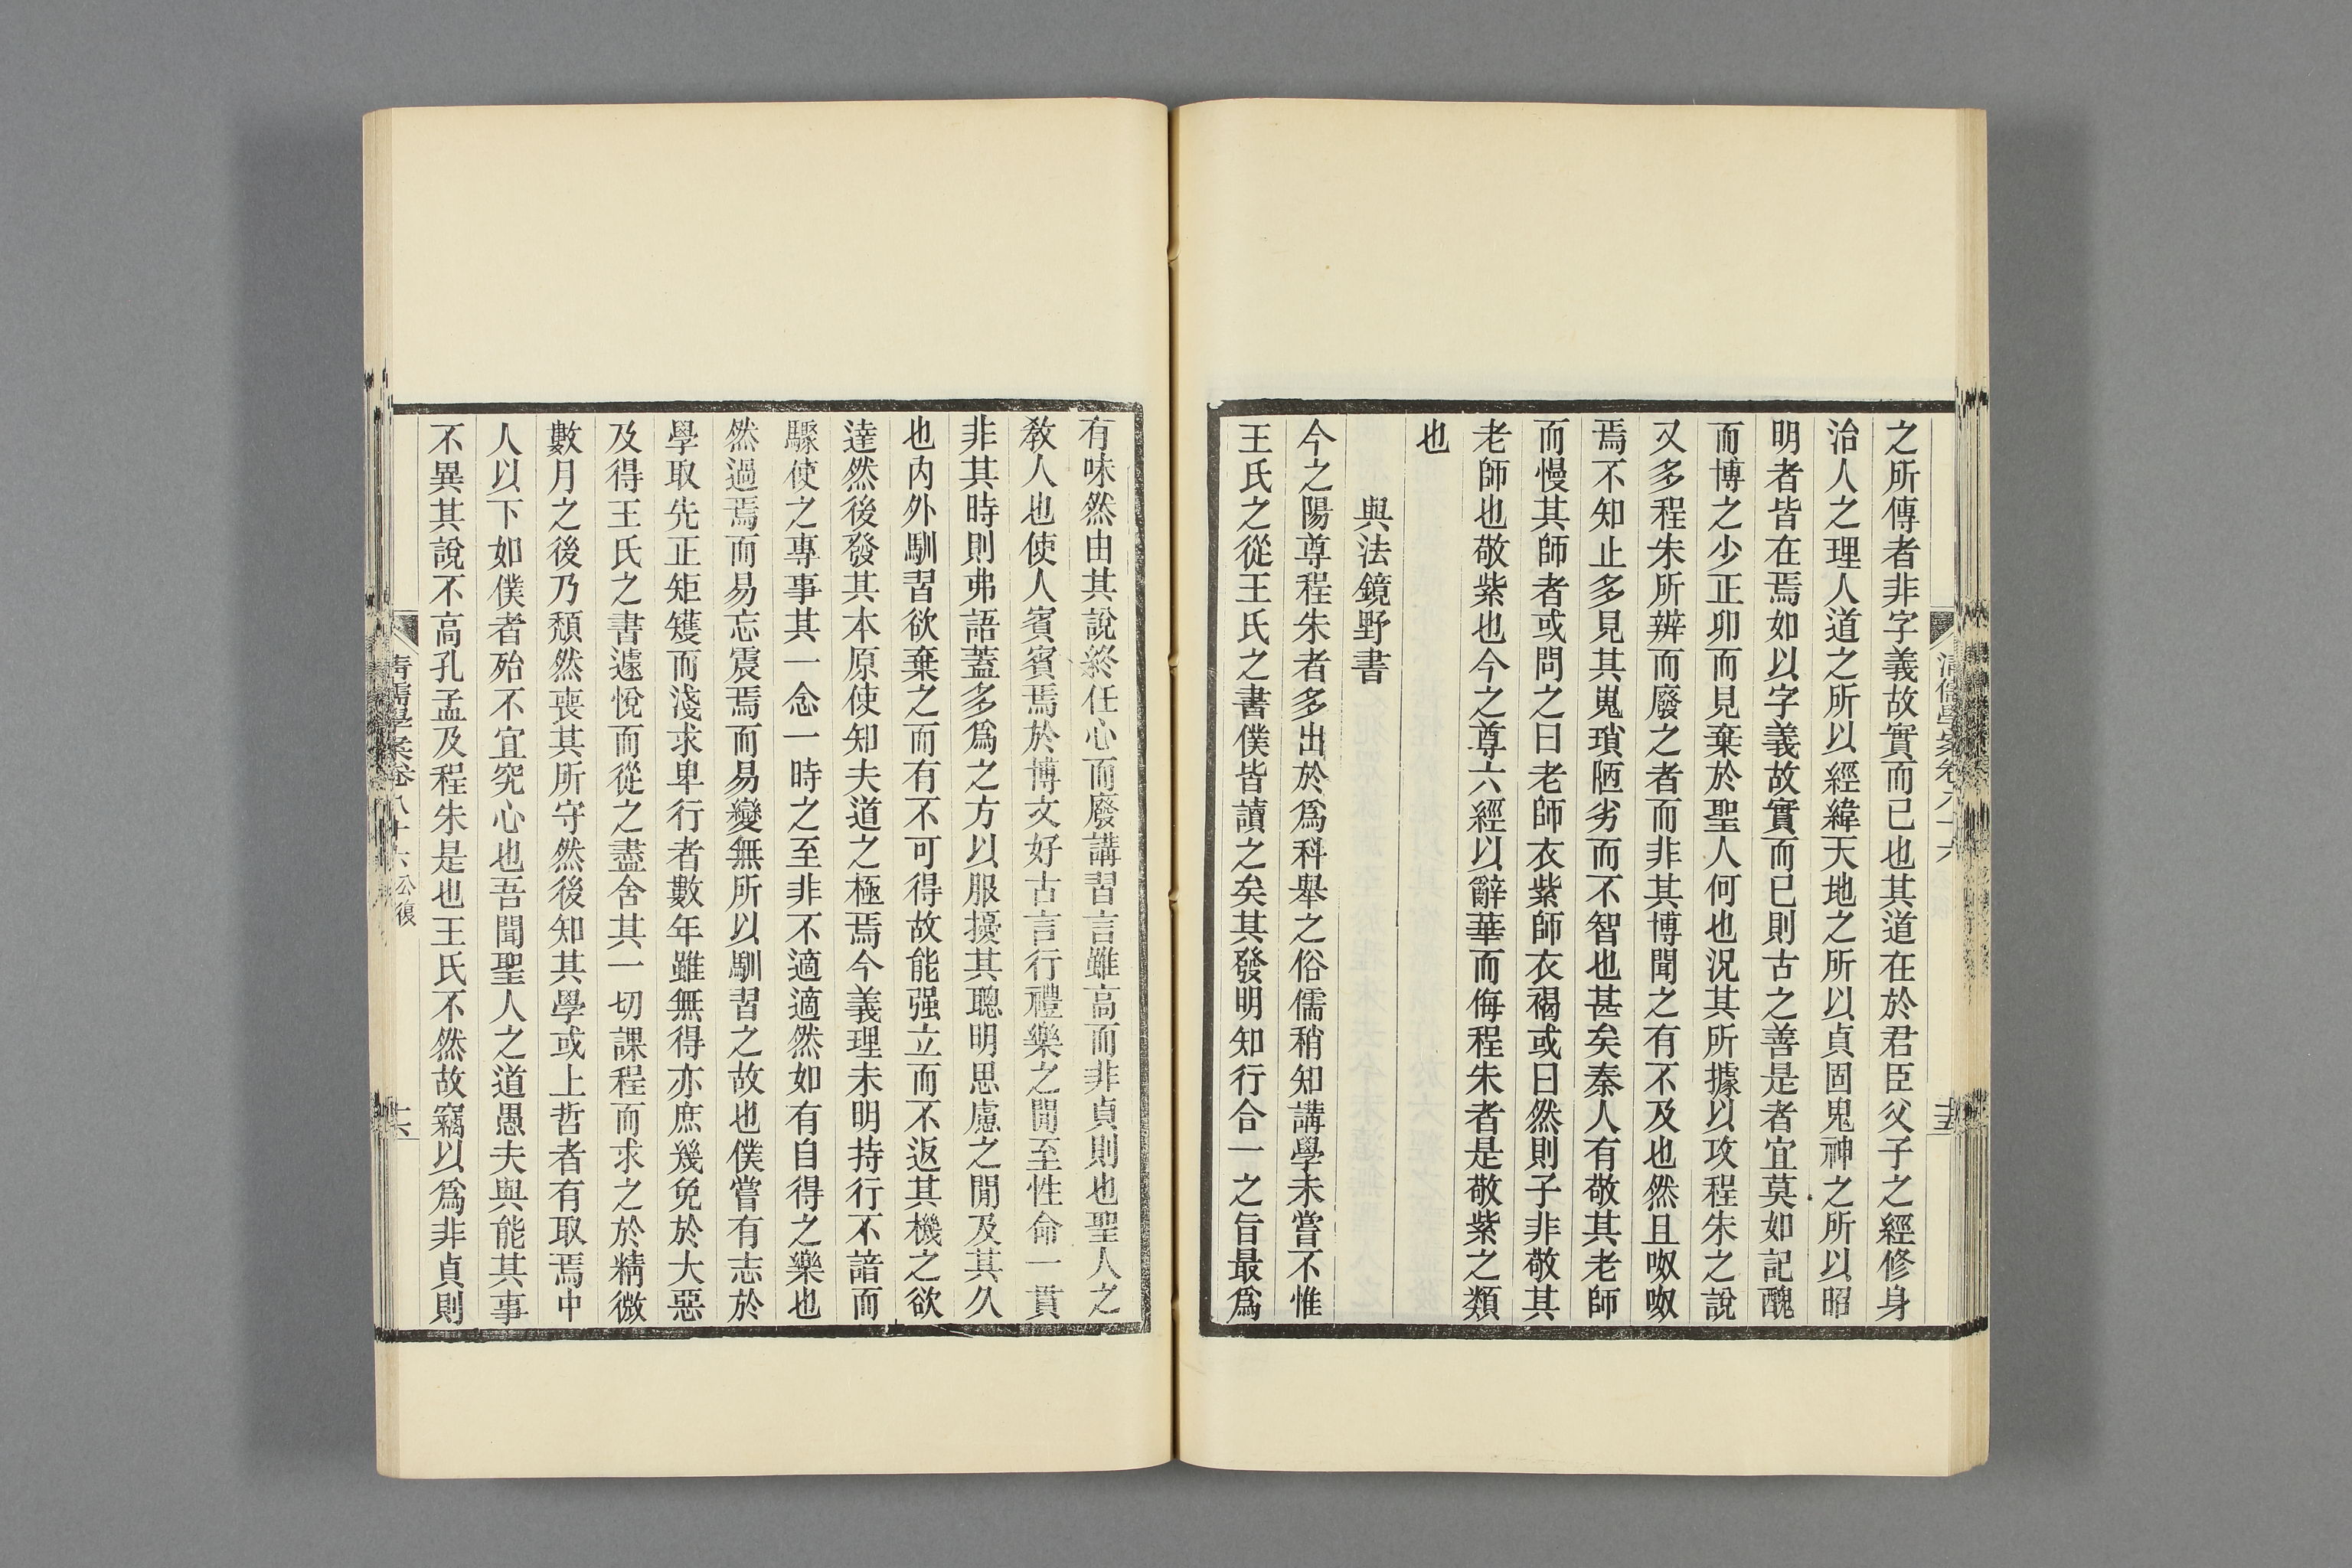 之所傳者非字義故實而已也其道在於君臣父子之經修身
治人之理人道之所以經緯天地之所以貞固鬼神之所以昭
明者皆在焉如以字義故實而已則古之善是者宜莫如記醜
而博之少正卯而見棄於聖人何也況其所據以攻程朱之說
又多程朱所辨而廢之者而非其博聞之有不及也然且呶呶
焉不知止多見其嵬瑣陋劣而不智也甚矣秦人有敬其老師
而慢其師者或問之曰老師衣紫師衣褐或曰然則子非敬其
老師也敬紫也今之尊六經以辭華而侮程朱者是敬紫之類
也
與法鏡野書
今之陽尊程朱者多出於爲科舉之俗儒稍知講學未嘗不惟
王氏之從王氏之書僕皆讀之矣其發明知行合一之旨最爲
清儒學案卷八十六
十五
有味然由其說終任心而廢講習言雖高而非貞則也聖人之
敎人也使人賓賓焉於博文好古言行禮樂之閒至性命一貫
非其時則弗語蓋多爲之方以服擾其聰明思慮之閒及其久
也內外馴習欲棄之而有不可得故能强立而不返其機之欲
達然後發其本原使知夫道之極焉今義理未明持行不諳而
驟使之專事其一念一時之至非不適適然如有自得之樂也
然過焉而易忘震焉而易變無所以馴習之故也僕嘗有志於
學取先正矩矱而淺求卑行者數年雖無得亦庶幾免於大惡
及得王氏之書遽悅而從之盡舍其一切課程而求之於精微
數月之後乃頽然喪其所守然後知其學或上哲者有取焉中
人以下如僕者殆不宜究心也吾聞聖人之道愚夫與能其事
不異其說不高孔孟及程朱是也王氏不然故竊以爲非貞則
清儒學案卷八十六 公復
十六